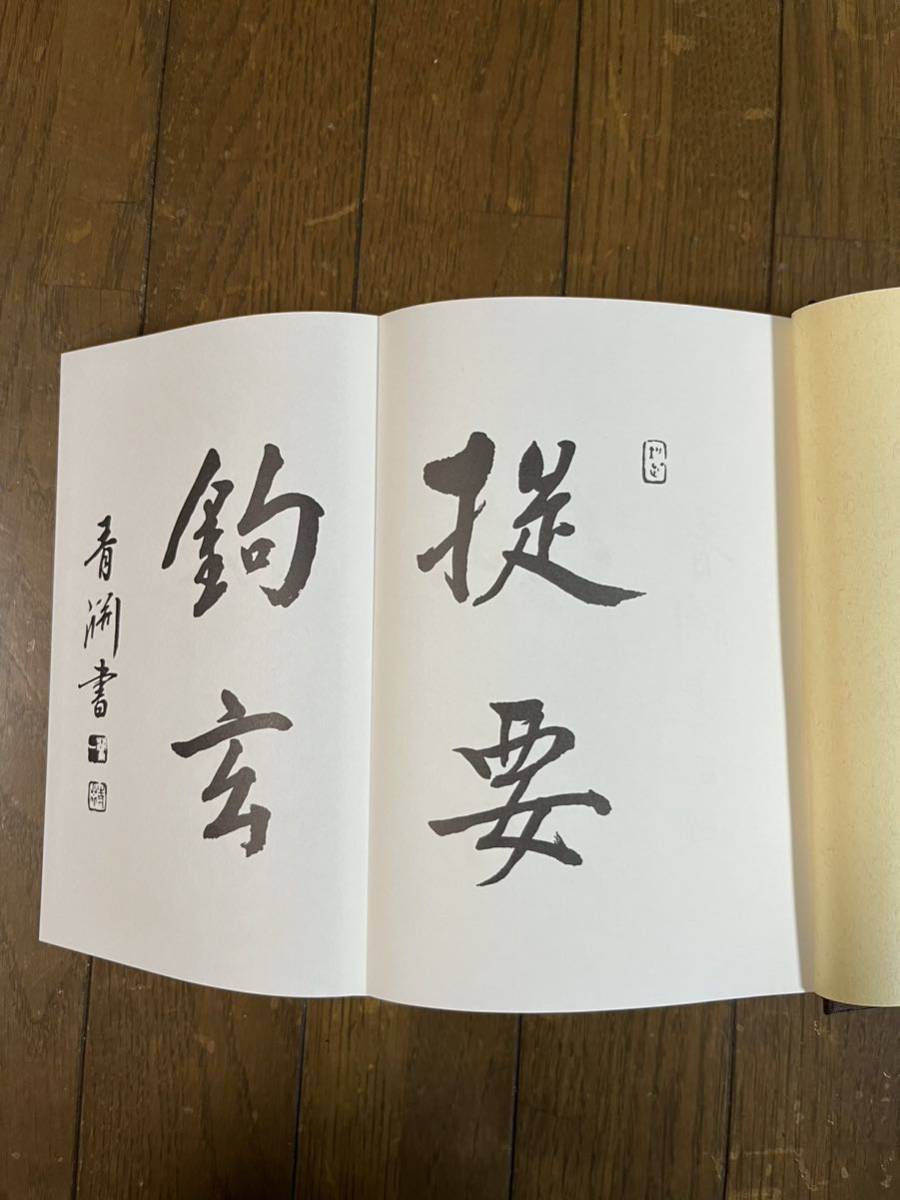 提要
鉤玄
青淵書